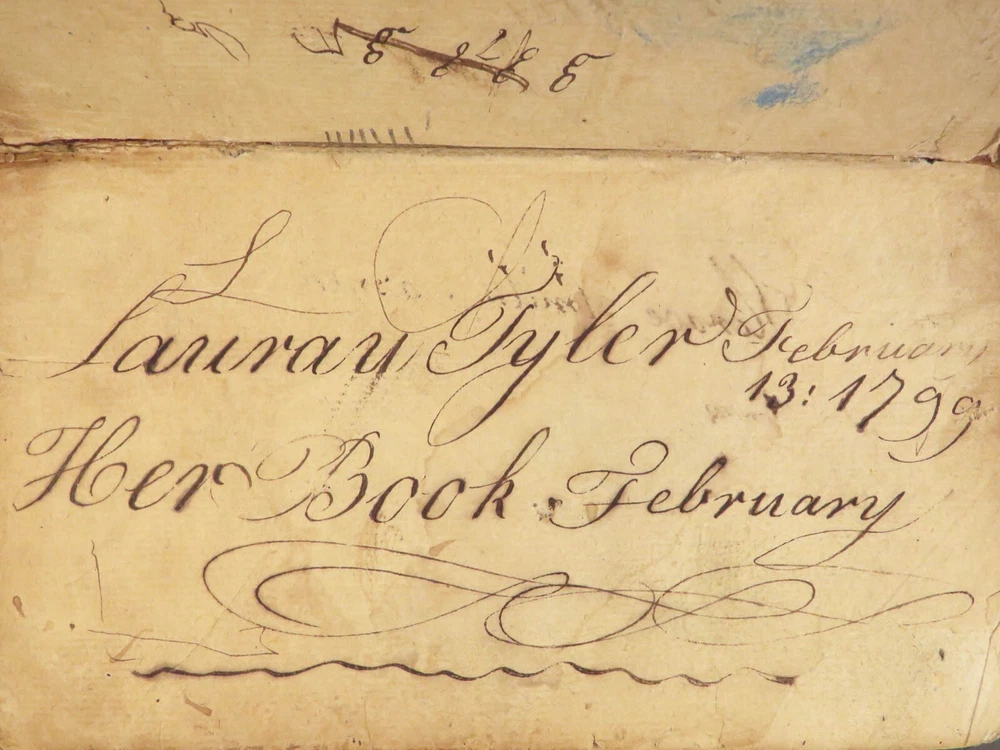 Laurau Tyler February
13: 1799
Her Book February